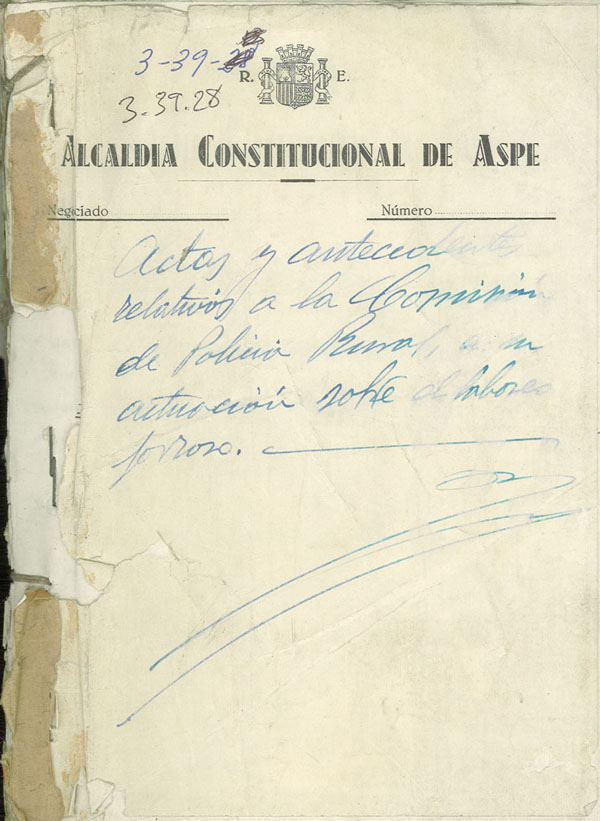 3-39-28
3.39.28
R. E.
ALCALDIA CONSTITUCIONAL DE ASPE
Negociado
Número
Actas y antecedentes
relativos a la Comisión
de Policia Rural, a su
actuación sobre el laboreo
forzoso.